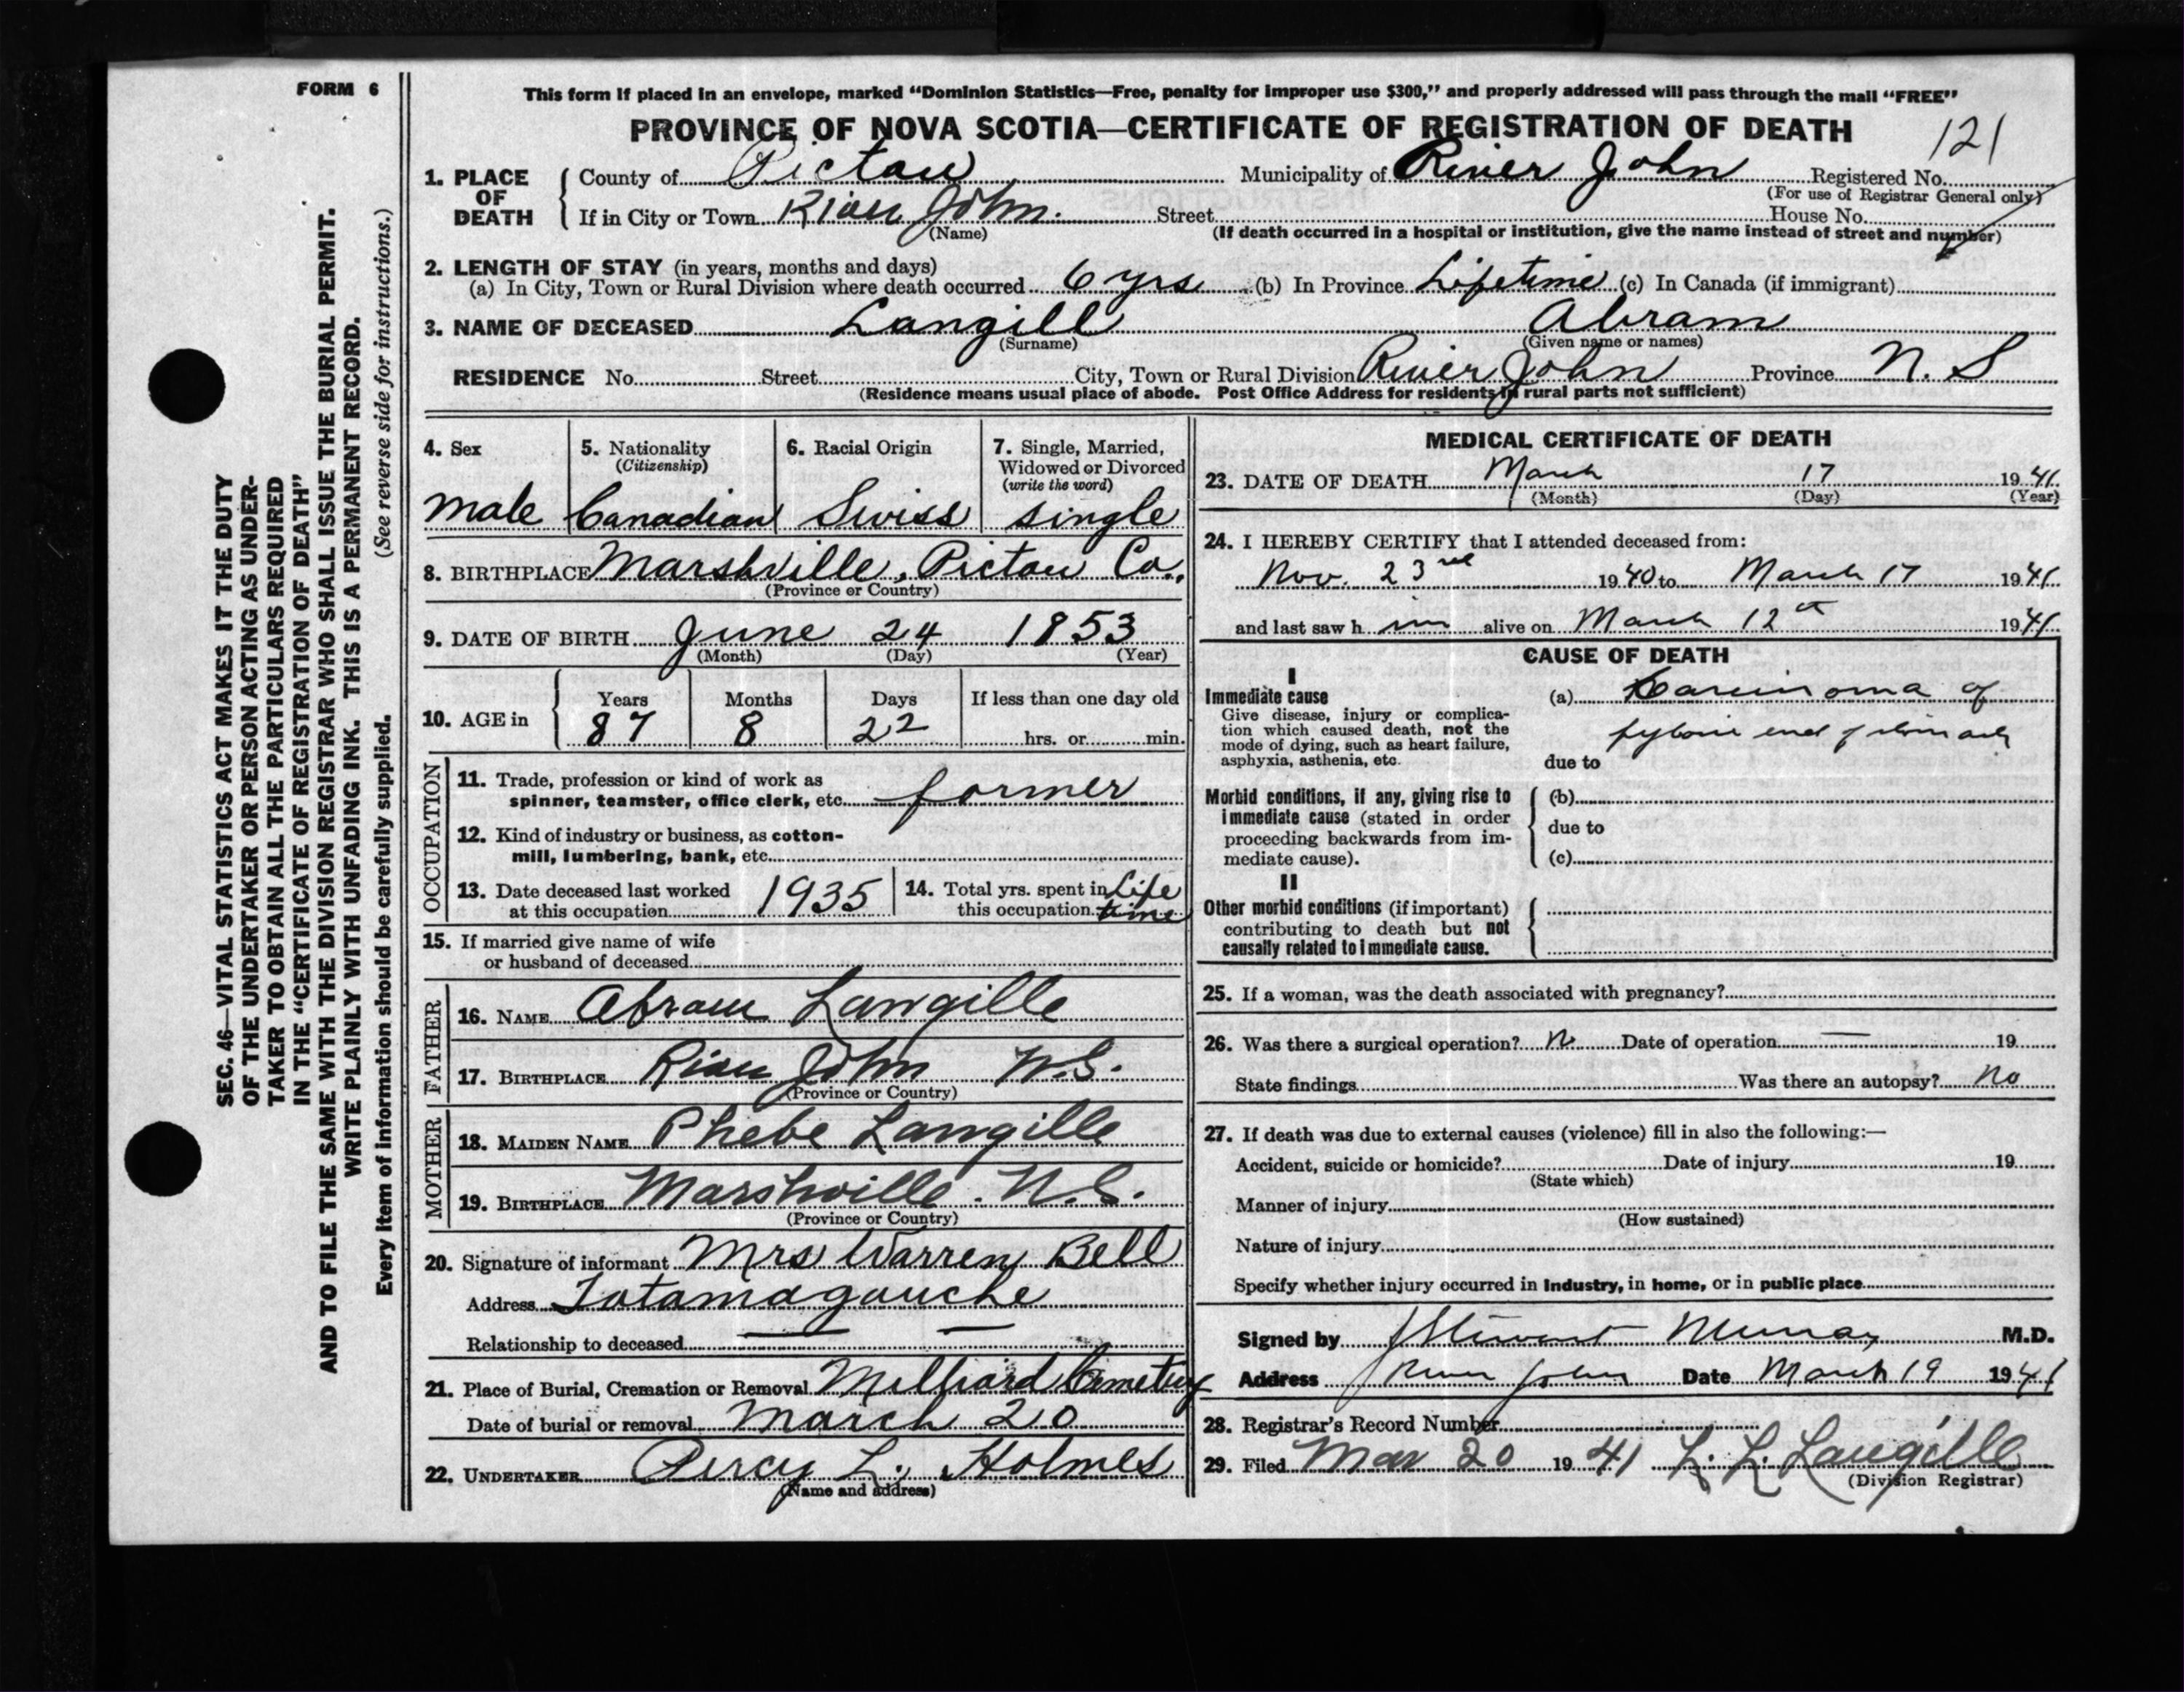 FORM 6
This form if placed in an envelope, marked "Dominion Statistics—Free, penalty for improper use $300," and properly addressed will pass through the mail "FREE"
PROVINCE OF NOVA SCOTIA—CERTIFICATE OF REGISTRATION OF DEATH
121
1. PLACE OF DEATH
County of Pictou Municipality of River John Registered No.
(For use of Registrar General only)
If in City or Town River John. Street House No.
(Name) (If death occurred in a hospital or institution, give the name instead of street and number)
2. LENGTH OF STAY (in years, months and days)
(a) In City, Town or Rural Division where death occurred 6 yrs (b) In Province Lifetime (c) In Canada (if immigrant)
3. NAME OF DECEASED Langill Abram
(Surname) (Given name or names)
RESIDENCE No. Street City, Town or Rural Division River John Province N. S
(Residence means usual place of abode. Post Office Address for residents in rural parts not sufficient)
SEC. 46—VITAL STATISTICS ACT MAKES IT THE DUTY
OF THE UNDERTAKER OR PERSON ACTING AS UNDER-
TAKER TO OBTAIN ALL THE PARTICULARS REQUIRED
IN THE "CERTIFICATE OF REGISTRATION OF DEATH"
AND TO FILE THE SAME WITH THE DIVISION REGISTRAR WHO SHALL ISSUE THE BURIAL PERMIT.
WRITE PLAINLY WITH UNFADING INK. THIS IS A PERMANENT RECORD.
Every item of information should be carefully supplied. (See reverse side for instructions.)
4. Sex
male
5. Nationality
(Citizenship)
Canadian
6. Racial Origin
Swiss
7. Single, Married,
Widowed or Divorced
(write the word)
single
8. BIRTHPLACE Marshville, Pictou Co.,
(Province or Country)
9. DATE OF BIRTH June 24 1853
(Month) (Day) (Year)
10. AGE in
Years Months Days If less than one day old
87 8 22 hrs. or min.
OCCUPATION
11. Trade, profession or kind of work as
spinner, teamster, office clerk, etc. farmer
12. Kind of industry or business, as cotton-
mill, lumbering, bank, etc.
13. Date deceased last worked
at this occupation 1935
14. Total yrs. spent in Life
this occupation time
15. If married give name of wife
or husband of deceased
FATHER
16. NAME Abram Langille
17. BIRTHPLACE River John N.S.
(Province or Country)
MOTHER
18. MAIDEN NAME Phebe Langille
19. BIRTHPLACE Marshville. N.S.
(Province or Country)
20. Signature of informant Mrs Warren Bell
Address Tatamagouche
Relationship to deceased — —
21. Place of Burial, Cremation or Removal Milliard Cemetery
Date of burial or removal March 20
22. UNDERTAKER Percy L. Holmes
(Name and address)
MEDICAL CERTIFICATE OF DEATH
23. DATE OF DEATH March 17 1941
(Month) (Day) (Year)
24. I HEREBY CERTIFY that I attended deceased from:
Nov. 23rd 1940 to March 17 1941
and last saw h im alive on March 12th 1941
CAUSE OF DEATH
I
Immediate cause
Give disease, injury or complica-
tion which caused death, not the
mode of dying, such as heart failure,
asphyxia, asthenia, etc.
(a) Carcinoma of
end of
due to
Morbid conditions, if any, giving rise to
immediate cause (stated in order
proceeding backwards from im-
mediate cause).
(b)
due to
(c)
II
Other morbid conditions (if important)
contributing to death but not
causally related to immediate cause.
25. If a woman, was the death associated with pregnancy?
26. Was there a surgical operation? No Date of operation — 19
State findings Was there an autopsy? no
27. If death was due to external causes (violence) fill in also the following:—
Accident, suicide or homicide? Date of injury 19
(State which)
Manner of injury
(How sustained)
Nature of injury
Specify whether injury occurred in industry, in home, or in public place
Signed by J Stewart Murray M.D.
Address River John Date March 19 1941
28. Registrar's Record Number
29. Filed Mar 20 1941 L. L. Langille
(Division Registrar)